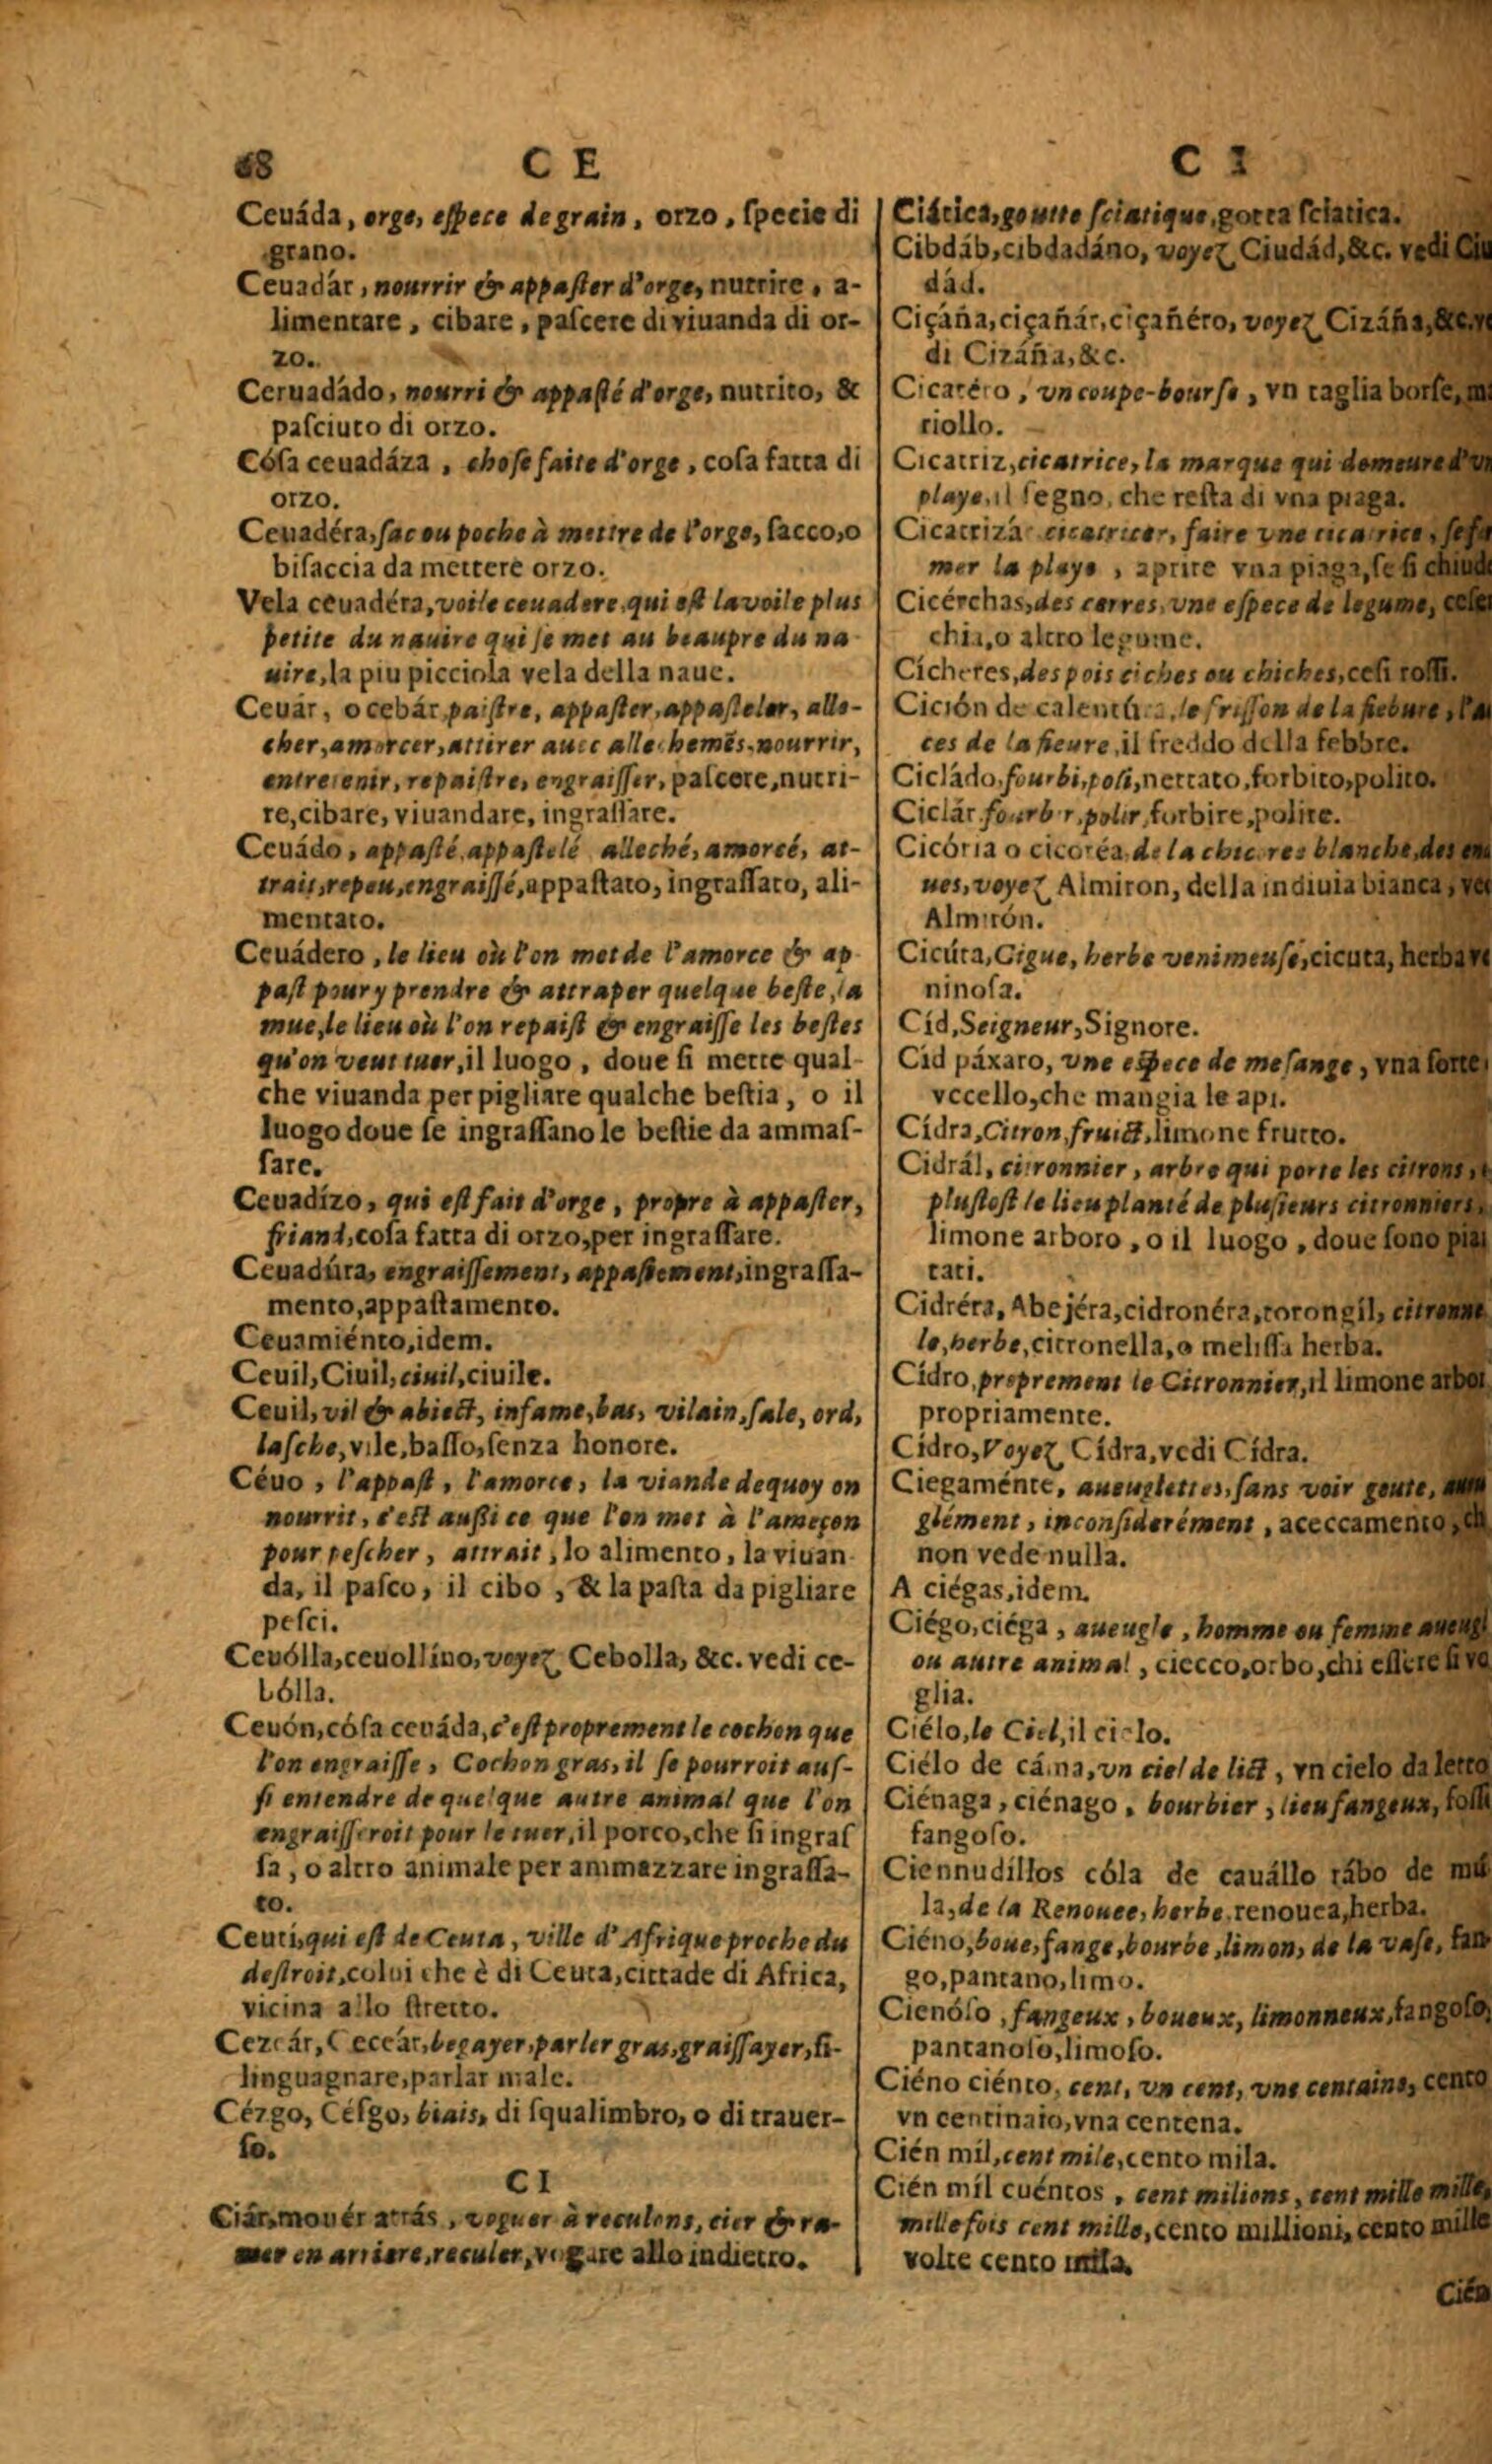 68 C E
Ceuáda, orge, eſpece de grain, orzo, ſpecie di
grano.
Ceuadár, nourrir & appaſter d'orge, nutrire, a-
limentare, cibare, paſcere di viuanda di or-
zo.
Ceruadádo, nourri & appaſté d'orge, nutrito, &
paſciuto di orzo.
Cóſa ceuadáza, choſe faite d'orge, coſa fatta di
orzo.
Ceuadéra, ſac ou poche à mettre de l'orge, ſacco, o
biſaccia da mettere orzo.
Vela ceuadéra, voile ceuadere, qui eſt la voile plus
petite du nauire qui ſe met au beaupre du na
uire, la piu picciola vela della naue.
Ceuár, o cebár, paiſtre, appaſter, appaſteler, alle-
cher, amorcer, attirer auec allechemẽs, nourrir,
entretenir, repaiſtre, engraiſſer, paſcere, nutri-
re, cibare, viuandare, ingraſſare.
Ceuádo, appaſté, appaſtelé alleché, amorcé, at-
trait, repeu, engraiſſé, appaſtato, ingraſſato, ali-
mentato.
Ceuádero, le lieu où l'on met de l'amorce & ap
paſt pour y prendre & attraper quelque beſte, la
mue, le lieu où l'on repaiſt & engraiſſe les beſtes
qu'on veut tuer, il luogo, doue ſi mette qual
che viuanda per pigliare qualche beſtia, o il
luogo doue ſe ingraſſano le beſtie da ammaſ-
ſare.
Ceuadízo, qui eſt fait d'orge, propre à appaſter,
friand, coſa fatta di orzo, per ingraſſare.
Ceuadúra, engraiſſement, appaſtement, ingraſſa-
mento, appaſtamento.
Ceuamiénto, idem.
Ceuil, Ciuil, ciuil, ciuile.
Ceuil, vil & abiect, infame, bas, vilain, ſale, ord,
laſche, vile, baſſo, ſenza honore.
Céuo, l'appaſt, l'amorce, la viande dequoy on
nourrit, c'eſt auſſi ce que l'on met à l'ameçon
pour peſcher, attrait, lo alimento, la viuan
da, il paſco, il cibo, & la paſta da pigliare
peſci.
Ceuólla, ceuollíno, voyez Cebolla, &c. vedi ce-
bólla.
Ceuón, cóſa ceuáda, c'eſt proprement le cochon que
l'on engraiſſe, Cochon gras, il ſe pourroit auſ-
ſi entendre de quelque autre animal que l'on
engraiſſeroit pour le tuer, il porco, che ſi ingraſ
ſa, o altro animale per ammazzare ingraſſa-
to.
Ceuti, qui eſt de Ceuta, ville d'Afrique proche du
deſtroit, colui che è di Ceuta, cittade di Africa,
vicina allo ſtretto.
Cezeár, Ceceár, begayer, parler gras, graiſſayer, ſi-
linguagnare, parlar male.
Cézgo, Céſgo, biais, di ſqualimbro, o di trauer-
ſo.
C I
Ciár, mouér atrás, voguer à reculons, cier & ra-
mer en arriere, reculer, vogare allo indietro.
C I
Ciática, goutte ſciatique, gotta ſciatica.
Cibdáb, cibdadáno, voyez Ciudád, &c. vedi Ciu
dád.
Ciçáña, ciçañár, ciçañéro, voyez Cizáña, &c. ve
di Cizáña, &c.
Cicatéro, vn coupe-bourſe, vn taglia borſe, ma
riollo.
Cicatriz, cicatrice, la marque qui demeure d'vn
playe, il ſegno, che reſta di vna piaga.
Cicatrizá cicatricer, faire vne cicatrice, ſe fer
mer la playe, aprire vna piaga, ſe ſi chiude
Cicérchas, des cerres, vne eſpece de legume, ceſer
chia, o altro legume.
Cícheres, des pois ciches ou chiches, ceſi roſſi.
Cición de calentúra, le friſſon de la fiebure, l'ac
ces de la fieure, il freddo della febbre.
Cicládo, fourbi, poli, nettato, forbito, polito.
Ciclár fourbir, polir, forbire, polire.
Cicória o cicoréa, de la chicorée blanche, des en
ues, voyez Almiron, della indiuia bianca, ve
Almirón.
Cicúta, Cigue, herbe venimeuſe, cicuta, herba ve
ninoſa.
Cíd, Seigneur, Signore.
Cid páxaro, vne eſpece de meſange, vna ſorte
vccello, che mangia le api.
Cídra, Citron, fruict, limone frutto.
Cidrál, citronnier, arbre qui porte les citrons,
pluſtoſt le lieu planté de pluſieurs citronniers,
limone arboro, o il luogo, doue ſono pian
tati.
Cidréra, Abejéra, cidronéra, torongíl, citronne
le, herbe, citronella, o meliſſa herba.
Cídro, proprement le Citronnier, il limone arbor
propriamente.
Cídro, Voyez Cídra, vedi Cídra.
Ciegaménte, aueuglettes, ſans voir goute, aueu
glément, inconſiderément, aceccamento, ch
non vede nulla.
A ciégas, idem.
Ciégo, ciéga, aueugle, homme ou femme aueugl
ou autre animal, ciecco, orbo, chi eſſere ſi vo
glia.
Ciélo, le Ciel, il cielo.
Ciélo de cáma, vn ciel de lict, vn cielo da letto
Ciénaga, ciénago, bourbier, lieu fangeux, foſſ
fangoſo.
Ciennudíllos cóla de cauállo rábo de mú
la, de la Renouee, herbe, renouea, herba.
Ciéno, boue, fange, bourbe, limon, de la vaſe, fan
go, pantano, limo.
Cienóſo, fangeux, boueux, limonneux, fangoſo,
pantanoſo, limoſo.
Ciéno ciénto, cent, vn cent, vne centaine, cento
vn centinaio, vna centena.
Cién mil, cent mile, cento mila.
Cién mil cuéntos, cent milions, cent mille mille,
mille fois cent mille, cento millioni, cento mille
volte cento mila.
Cién